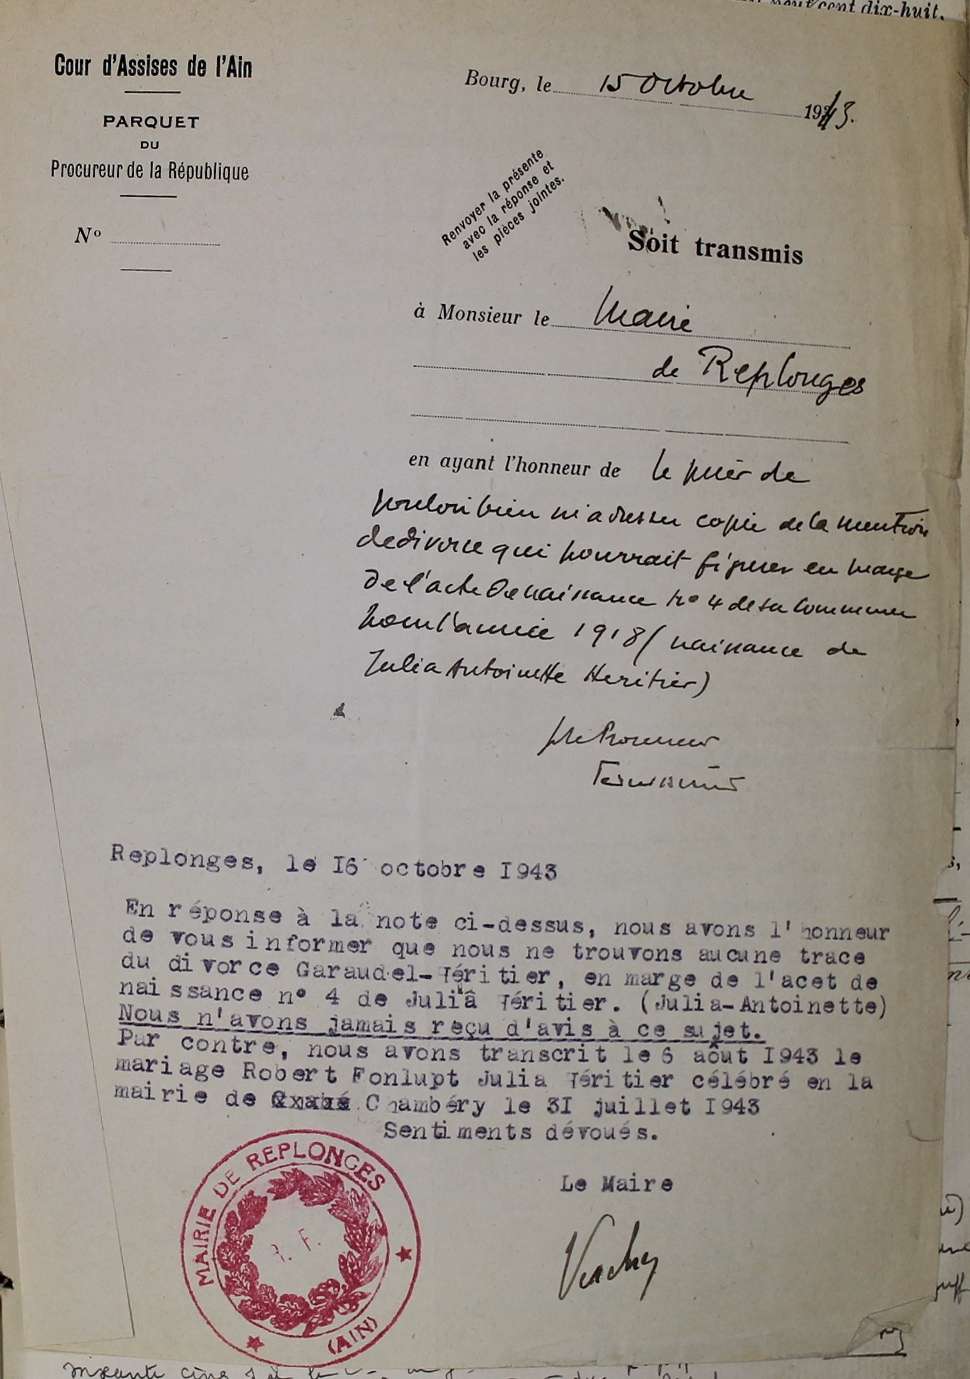 cent dix-huit.
Cour d'Assises de l'Ain
PARQUET
DU
Procureur de la République
No
Bourg, le 15 Octobre 1943.
Renvoyer la présente
avec la réponse et
les pièces jointes.
Soit transmis
à Monsieur le Maire
de Replonges
en ayant l'honneur de le prier de
vouloir bien m'adresser copie de la mention
de divorce qui pourrait figurer en marge
de l'acte de naissance no 4 de sa commune
pour l'année 1918 (naissance de
Julia Antoinette Heritier)
Replonges, le I6 octobre I943
En réponse à la note ci-dessus, nous avons l'honneur
de vous informer que nous ne trouvons aucune trace
du divorce Garaudel-Héritier, en marge de l'acet de
naissance n° 4 de Julia Héritier. (Julia-Antoinette)
Nous n'avons jamais reçu d'avis à ce sujet.
Par contre, nous avons transcrit le 6 août I943 le
mariage Robert Fonlupt Julia Héritier célébré en la
mairie de Chambéry le 3I juillet I943
Sentiments dévoués.
Le Maire
MAIRIE DE REPLONGES
R. F.
(AIN)